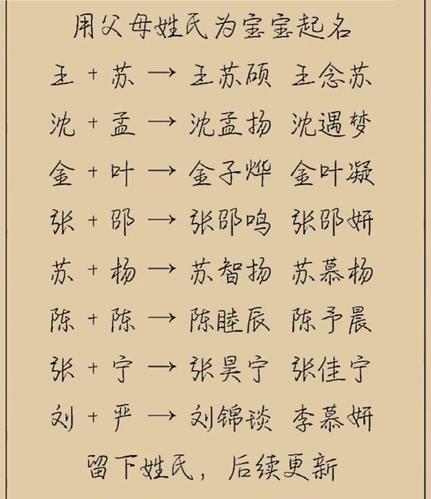 用父母姓氏为宝宝起名
王 + 苏 → 王苏硕 王念苏
沈 + 孟 → 沈孟扬 沈遇梦
金 + 叶 → 金子烨 金叶凝
张 + 邵 → 张邵鸣 张邵妍
苏 + 杨 → 苏智扬 苏慕杨
陈 + 陈 → 陈睦辰 陈予晨
张 + 宁 → 张昊宁 张佳宁
刘 + 严 → 刘锦琰 李慕妍
留下姓氏，后续更新